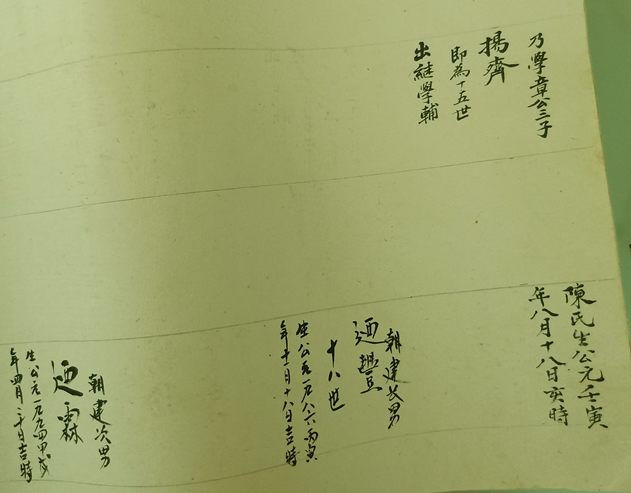 乃學章公三子
揚齊
即為十五世
出繼學輔
陳氏生公元壬寅
年八月十八日亥時
朝建长男
迺豐
十八世
生公元一九八六丙寅
年十月十八日吉時
朝建次男
迺霖
生公元一九九四甲戌
年四月二十日吉時